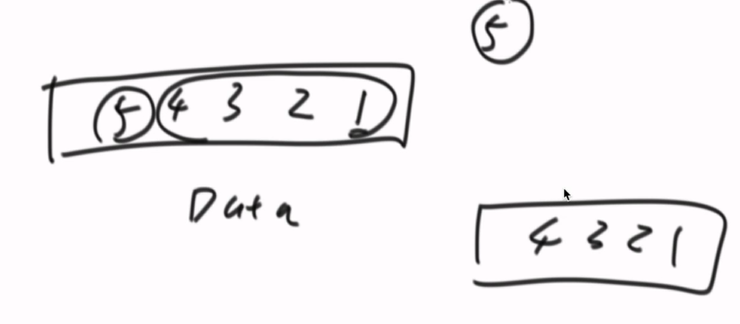 5
5 4 3 2 1
Data
4 3 2 1